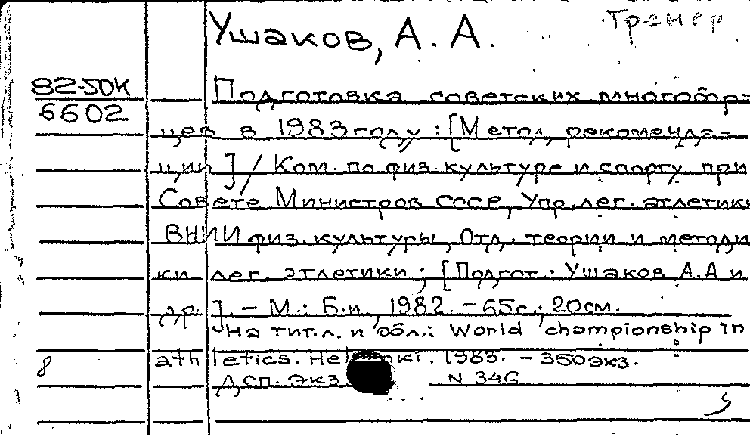 Тренер
Ушаков, А. А.
82-5ОК
6602
Подготовка советских многобор-
цев в 1983 году : [Метод. рекоменда-
ции] / Ком. по физ. культуре и спорту при
Совете Министров СССР, Упр. лег. атлетики,
ВНИИ физ. культуры, Отд. теории и методи-
ки лег. атлетики ; [Подгот.: Ушаков А.А и
др.]. - М.: Б.и., 1982. - 65с.; 20см.
На тит.л. и обл.: World championship in
athletics. Helsinki. 1983. - 350экз.
ДСП. Экз N 346
8